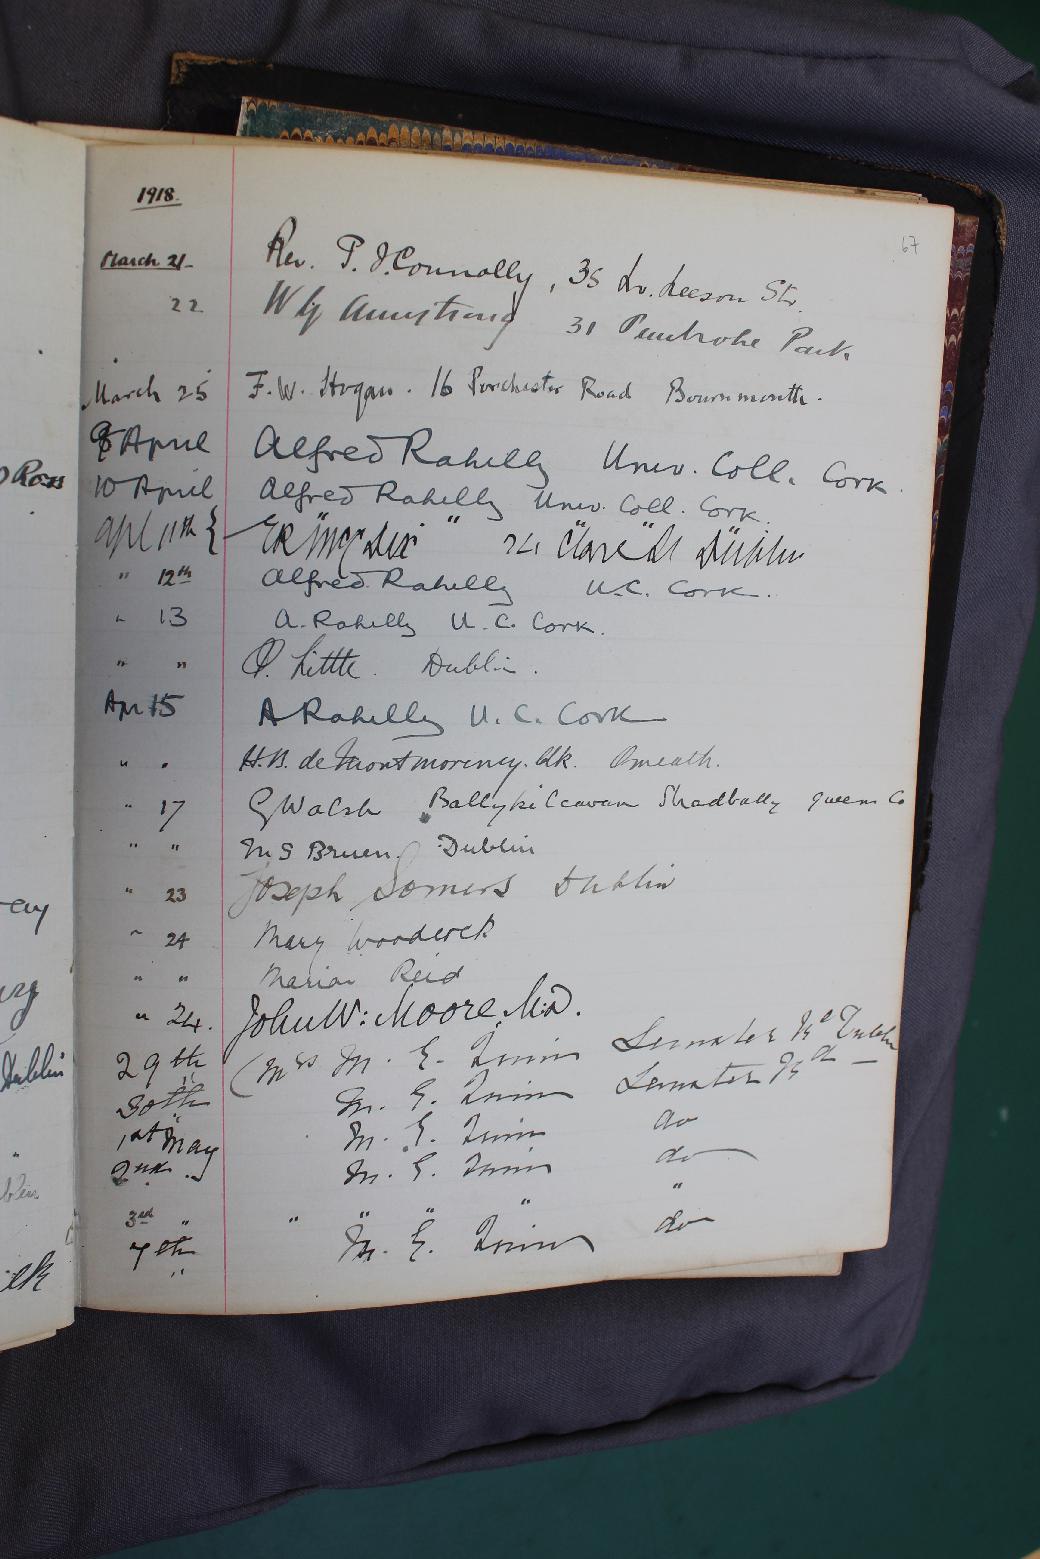 1918.
67
March 21 Rev. P. J. Connolly, 35 Lr. Leeson St.
22 W G Armstrong 31 Pembroke Park
March 25 F. W. Hogan. 16 Porchester Road Bournmouth.
8 April Alfred Rahilly Univ. Coll. Cork.
10 April Alfred Rahilly Univ. Coll. Cork.
Apl 11th { ER McC Dix 24 Clare St Dublin
" 12th Alfred Rahilly U.C. Cork.
" 13 A. Rahilly U.C. Cork.
" " Little. Dublin.
Apr 15 A Rahilly U.C. Cork
" " H.B. de Montmorency. Omeath.
" 17 G Walsh Ballykilcavan Stradbally Queens Co
" " M S Bruen. Dublin
" 23 Joseph Somers Dublin
" 24 Mary Woodcock
" " Marian Reid
" 24. John W: Moore, M.D.
29th (Mrs M. E. Quinn Leinster Rd Dublin
30th M. E. Quinn Leinster Rd
1st May M. E. Quinn do
2nd " M. E. Quinn do
3rd " " " " " "
7th " M. E. Quinn do
Ross
Dublin